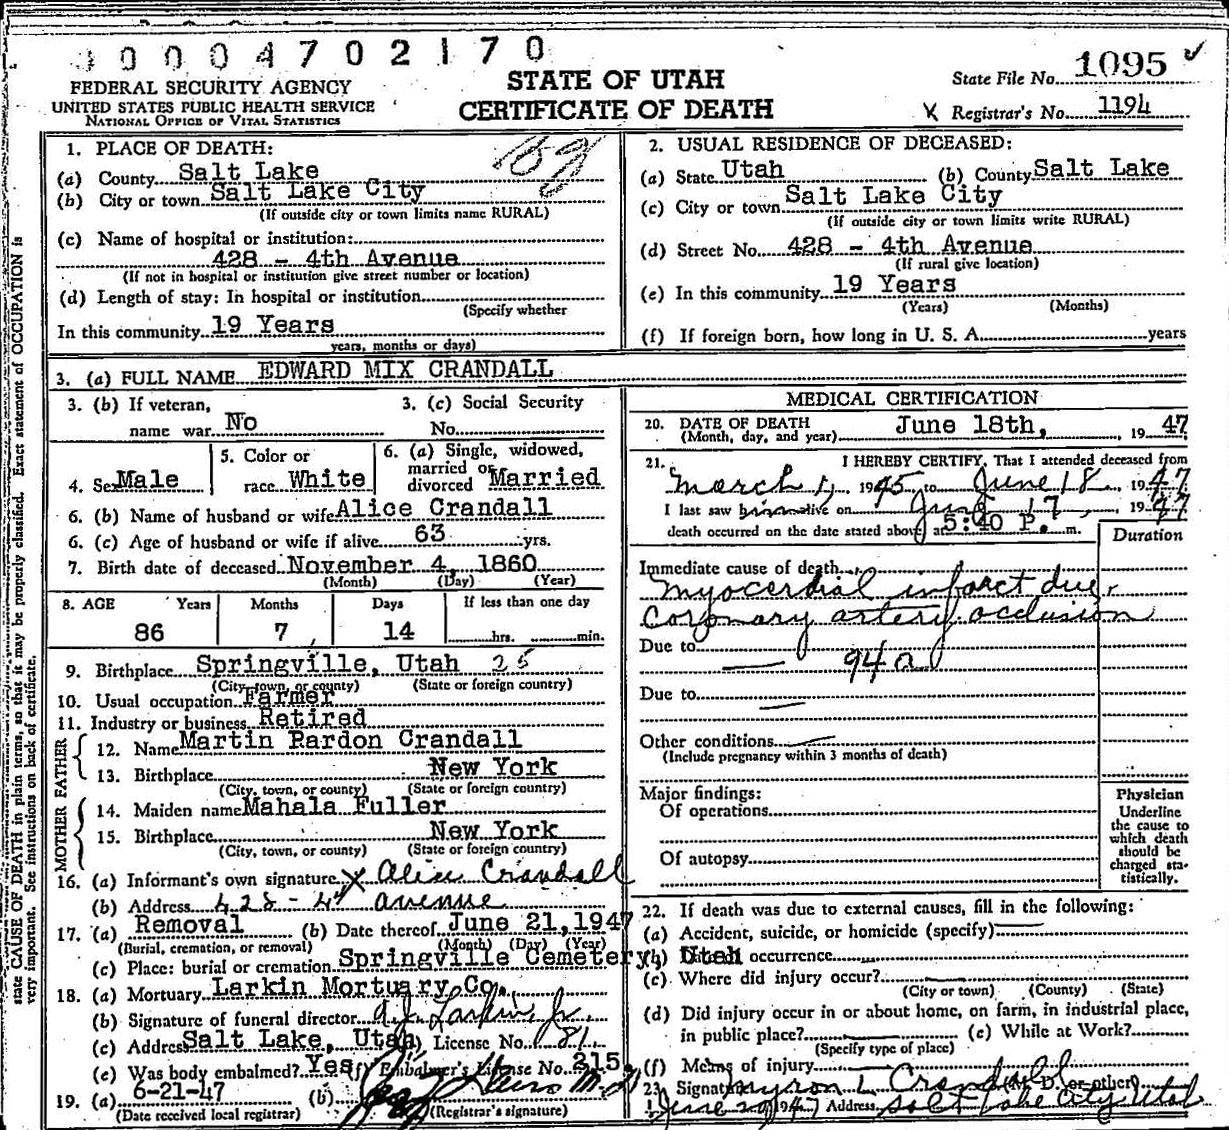 0 0 0 4 7 0 2 1 7 0
FEDERAL SECURITY AGENCY
UNITED STATES PUBLIC HEALTH SERVICE
NATIONAL OFFICE OF VITAL STATISTICS
STATE OF UTAH
CERTIFICATE OF DEATH
State File No. 1095 ✓
X Registrar's No. 1194
state CAUSE OF DEATH in plain terms, so that it may be properly classified. Exact statement of OCCUPATION is
very important. See instructions on back of certificate.
1. PLACE OF DEATH:
(a) County Salt Lake
(b) City or town Salt Lake City
(If outside city or town limits name RURAL)
(c) Name of hospital or institution:
428 - 4th Avenue
(If not in hospital or institution give street number or location)
(d) Length of stay: In hospital or institution
(Specify whether
In this community 19 Years
years, months or days)
2. USUAL RESIDENCE OF DECEASED:
(a) State Utah (b) County Salt Lake
(c) City or town Salt Lake City
(If outside city or town limits write RURAL)
(d) Street No. 428 - 4th Avenue
(If rural give location)
(e) In this community 19 Years
(Years) (Months)
(f) If foreign born, how long in U. S. A. years
3. (a) FULL NAME EDWARD MIX CRANDALL
3. (b) If veteran, name war No
3. (c) Social Security No.
4. Sex Male
5. Color or race White
6. (a) Single, widowed, married or divorced Married
6. (b) Name of husband or wife Alice Crandall
6. (c) Age of husband or wife if alive 63 yrs.
7. Birth date of deceased November 4, 1860
(Month) (Day) (Year)
8. AGE Years Months Days If less than one day
86 7 14 hrs. min.
9. Birthplace Springville, Utah 25
(City, town, or county) (State or foreign country)
10. Usual occupation Farmer
11. Industry or business Retired
FATHER
12. Name Martin Pardon Crandall
13. Birthplace New York
(City, town, or county) (State or foreign country)
MOTHER
14. Maiden name Mahala Fuller
15. Birthplace New York
(City, town, or county) (State or foreign country)
16. (a) Informant's own signature X Alice Crandall
(b) Address 428 - 4th avenue
17. (a) Removal (b) Date thereof June 21, 1947
(Burial, cremation, or removal) (Month) (Day) (Year)
(c) Place: burial or cremation Springville Cemetery, Utah
18. (a) Mortuary Larkin Mortuary Co.,
(b) Signature of funeral director A. J. Larkin Jr.
(c) Address Salt Lake, Utah License No. 81
(e) Was body embalmed? Yes (f) Embalmer's License No. 215
19. (a) 6-21-47 (b) M.D.
(Date received local registrar) (Registrar's signature)
MEDICAL CERTIFICATION
20. DATE OF DEATH
(Month, day, and year) June 18th, 1947
21. I HEREBY CERTIFY, That I attended deceased from
March 1, 1945 to June 18, 1947
I last saw him alive on June 17, 1947
death occurred on the date stated above, at 5:40 P. m.
Duration
Immediate cause of death
Myocardial infarct due,
Coronary artery occlusion
Due to 94a
Due to
Other conditions
(Include pregnancy within 3 months of death)
Major findings:
Of operations
Of autopsy
Physician
Underline
the cause to
which death
should be
charged sta-
tistically.
22. If death was due to external causes, fill in the following:
(a) Accident, suicide, or homicide (specify)
(b) occurrence
(c) Where did injury occur?
(City or town) (County) (State)
(d) Did injury occur in or about home, on farm, in industrial place,
in public place? (e) While at Work?
(Specify type of place)
(f) Means of injury
23. Signature Myron L Crandall (M. D. or other)
June 20 1947 Address Salt Lake City, Utah